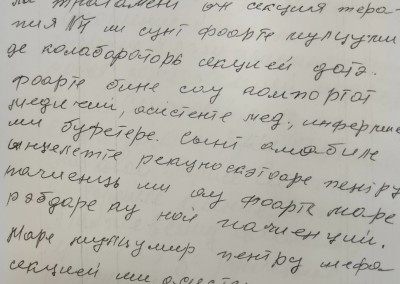 ла тратамент ын секция тера-
пия №1 ши сунт фоарте мулцумит
де колабораторь секцией датэ.
фоарте бине сау компортат
медичий, асистенте мед., инфермиере
ши буфетере. Сынт амабиле
ынцелепте рекуноскэтоаре пентру
пачиенць ши ау фоарте маре
рэбдаре ку ной пачиенций.
Маре мулцумир пентру шефа
секцией ши